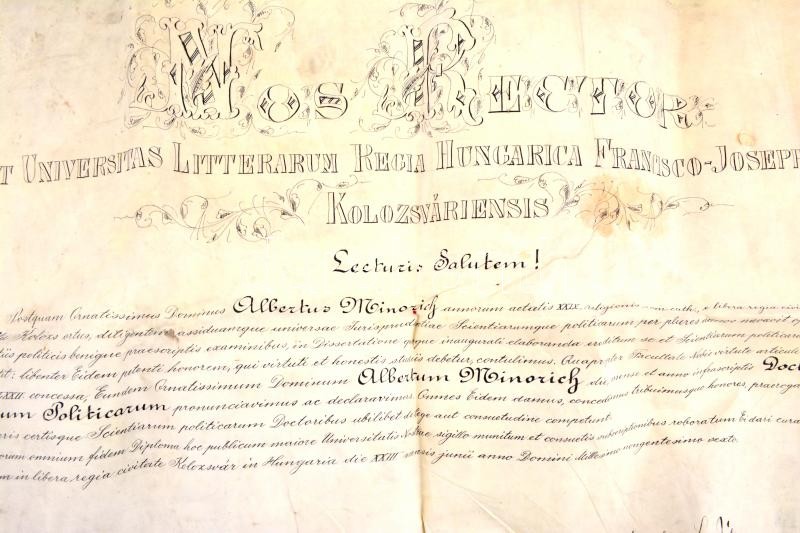 Nos Rector
t Universitas Litterarum Regia Hungarica Francisco-Joseph
Kolozsváriensis
Lecturis Salutem!
Postquam Ornatissimus Dominus Albertus Minorich annorum aetatis XXIX. religionis rom. cath., e libera regia civi
Kolozs ortus, diligentem assiduamque universae Jurisprudentiae Scientiarumque politicarum per plures annos navavit op
politicis benigne praescriptis examinibus, in Dissertatione quoque inaugurali elaboranda eruditum se et Scientiarum politicaru
libenter Eidem petenti honorem, qui virtuti et honestis studiis debetur, contulimus. Quapropter Facultate Nobis virtute articuli
XXII concessa, Eundem Ornatissimum Dominum Albertum Minorich die mense et anno infrascriptis Doct
um Politicarum pronunciavimus ac declaravimus. Omnes Eidem damus, concedimus tribuimusque honores, praeroga
ris certisque Scientiarum politicarum Doctoribus ubilibet de lege aut consuetudine competunt.
orum omnium fidem Diploma hoc publicum maiore Universitatis Nostrae sigillo munitum et consuetis subscriptionibus roboratum Eidari cura
m in libera regia civitate Kolozsvár in Hungaria die XXIII mensis junii anno Domini Millesimo nongentesimo sexto.